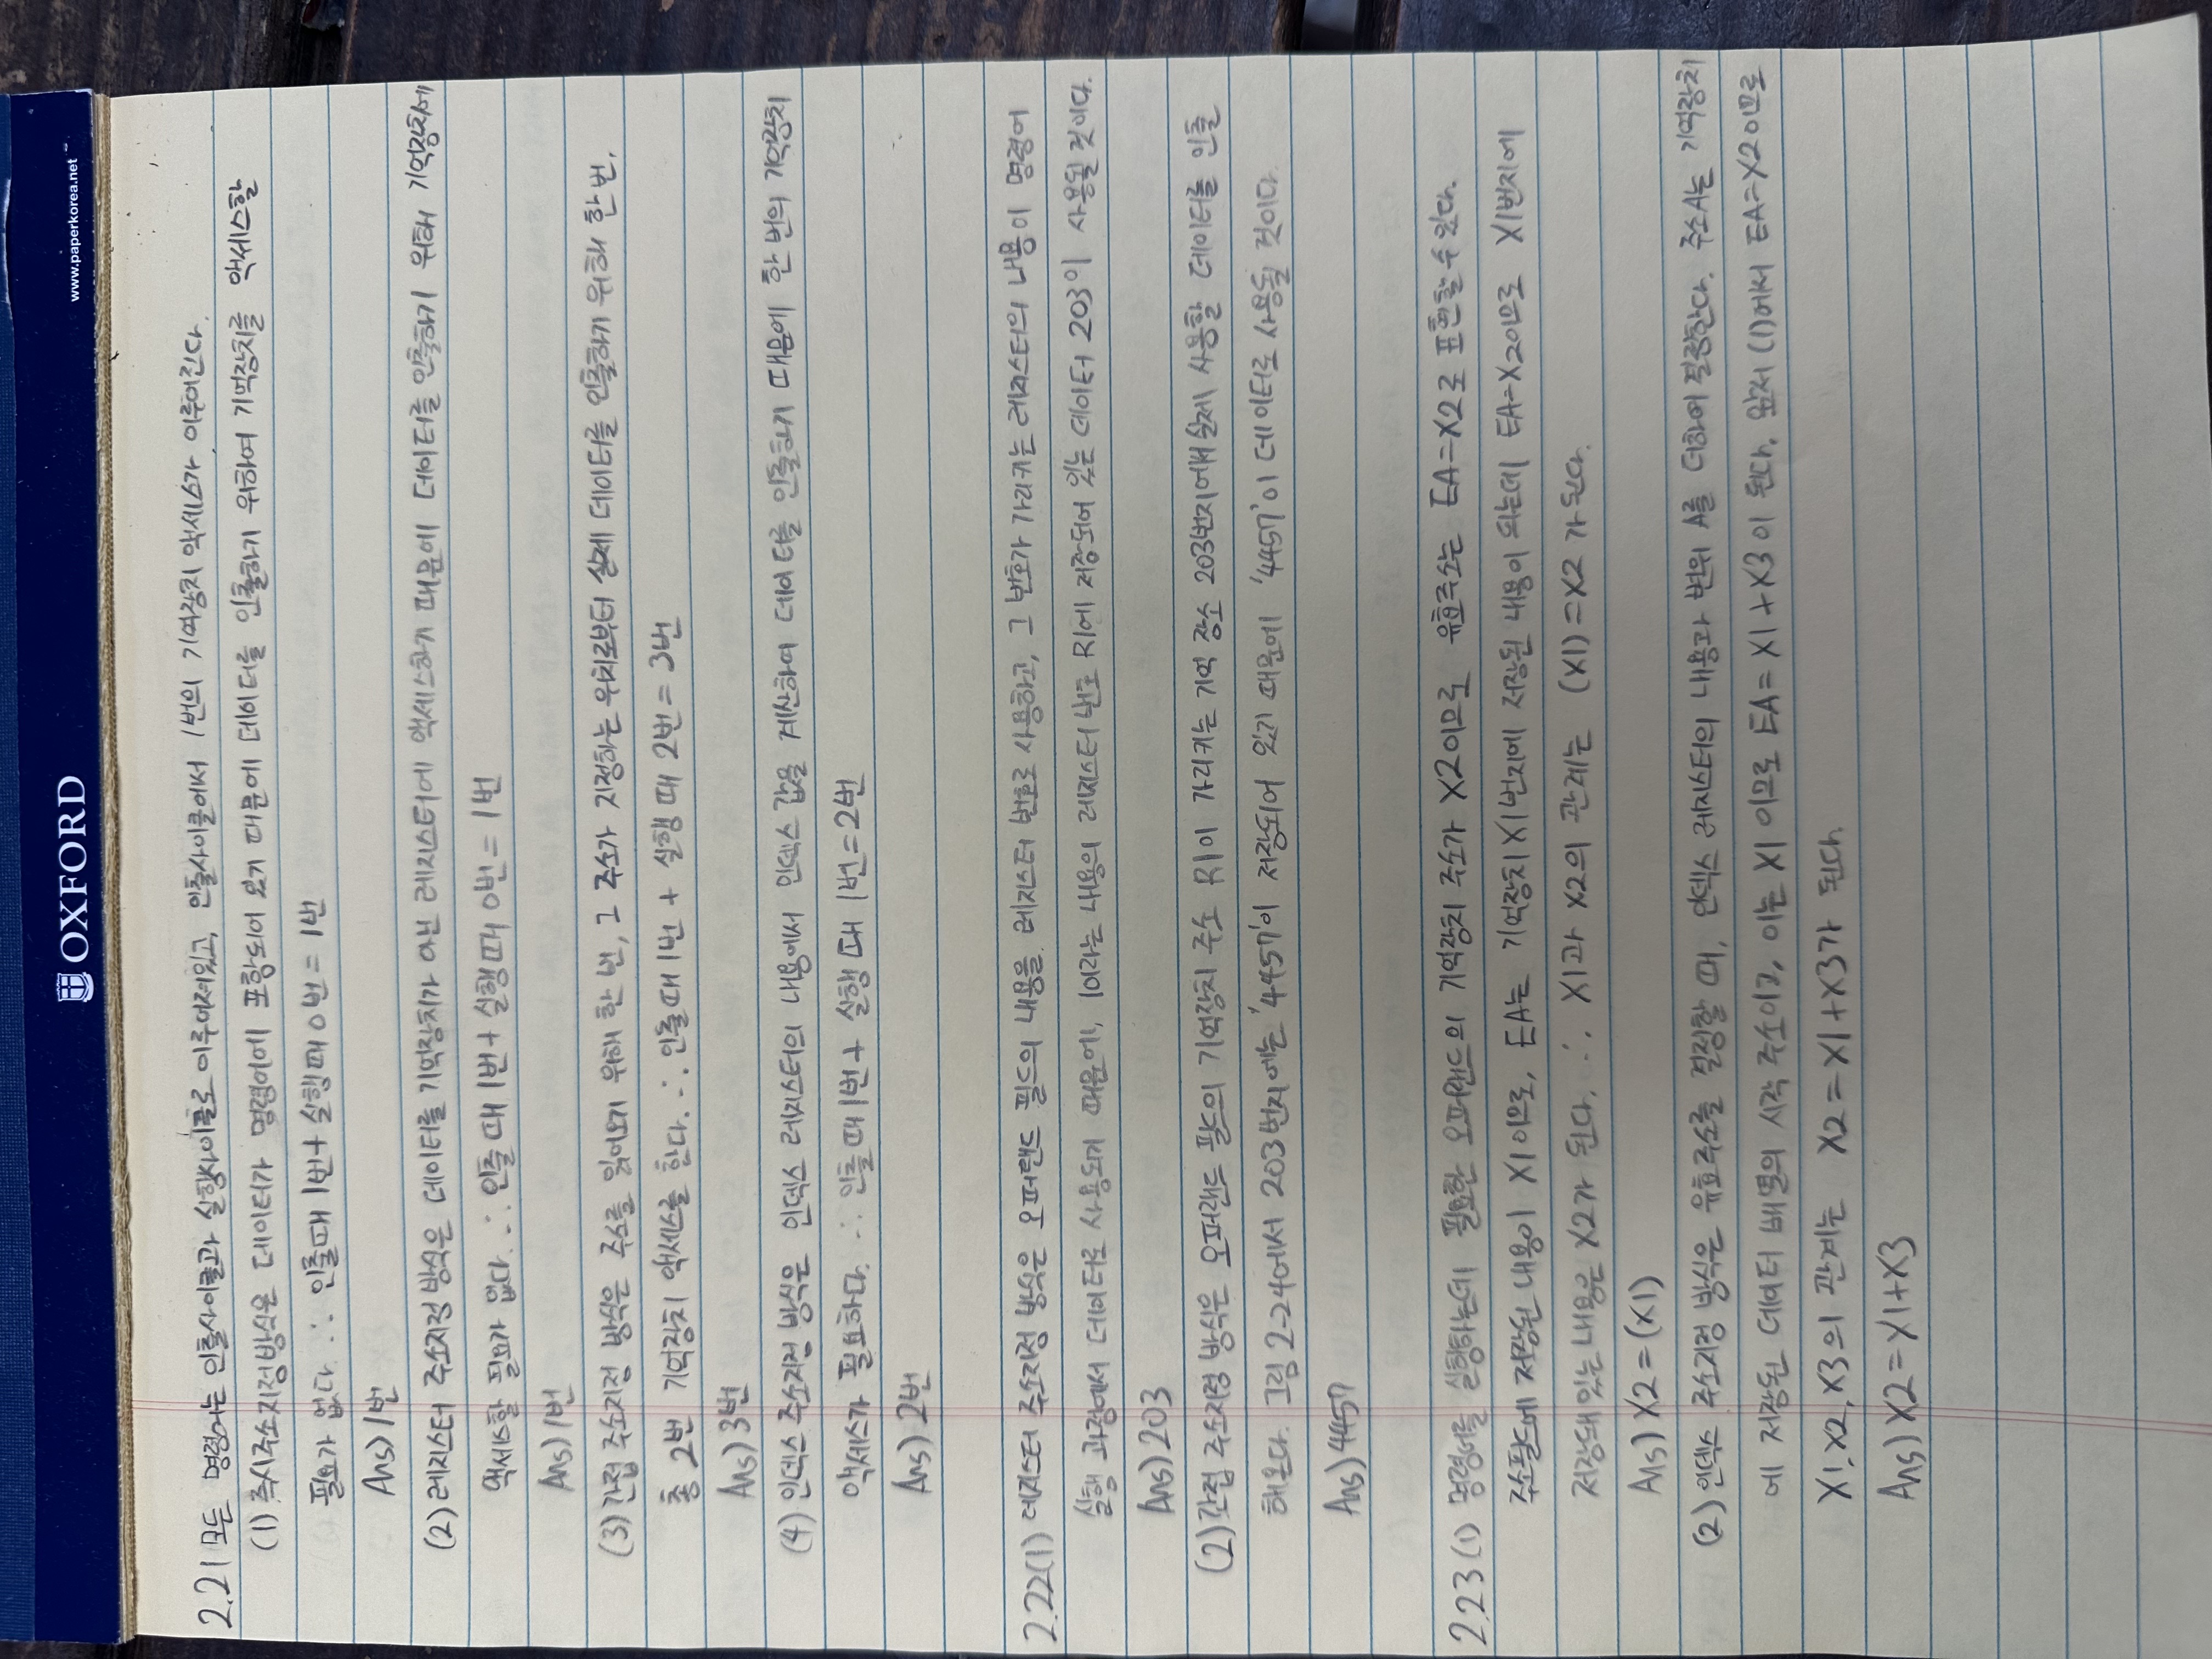 OXFORD
www.paperkorea.net
2.21 모든 명령어는 인출사이클과 실행사이클로 이루어져있고, 인출사이클에서 1번의 기억장치 액세스가 이루어진다.
(1) 즉시주소지정방식은 데이터가 명령어에 포함되어 있기 때문에 데이터를 인출하기 위하여 기억장치를 액세스할
필요가 없다. ∴ 인출때 1번+ 실행때 0번 = 1번
Ans) 1번
(2) 레지스터 주소지정 방식은 데이터를 기억장치가 아닌 레지스터에 액세스하기 때문에 데이터를 인출하기 위해 기억장치에
액세스할 필요가 없다. ∴ 인출 때 1번+ 실행 때 0번 = 1번
Ans) 1번
(3) 간접 주소지정 방식은 주소를 읽어오기 위해 한 번, 그 주소가 지정하는 위치로부터 실제 데이터를 인출하기 위해 한 번,
총 2번 기억장치 액세스를 한다. ∴ 인출때 1번 + 실행 때 2번 = 3번
Ans) 3번
(4) 인덱스 주소지정 방식은 인덱스 레지스터의 내용에서 인덱스 값을 계산하여 데이터를 인출하기 때문에 한 번의 기억장치
액세스가 필요하다. ∴ 인출 때 1번+ 실행 때 1번=2번
Ans) 2번
2.22(1) 레지스터 주소지정 방식은 오퍼랜드 필드의 내용을 레지스터 번호로 사용하고, 그 번호가 가리키는 레지스터의 내용이 명령어
실행 과정에서 데이터로 사용되기 때문에, 1이라는 내용의 레지스터 번호 R1에 저장되어 있는 데이터 203이 사용될 것이다.
Ans) 203
(2) 간접 주소지정 방식은 오퍼랜드 필드의 기억장치 주소 R1이 가리키는 기억 장소 203번지에서 실제 사용할 데이터를 인출
해온다. 그림 2-24에서 203번지에는 '4457'이 저장되어 있기 때문에 '4457'이 데이터로 사용될 것이다.
Ans) 4457
2.23 (1) 명령어를 실행하는데 필요한 오퍼랜드의 기억장치 주소가 X2이므로 유효주소는 EA=X2로 표현할 수 있다.
주소필드에 저장된 내용이 X1이므로, EA는 기억장치 X1번지에 저장된 내용이 되는데 EA=X2이므로 X1번지에
저장돼 있는 내용은 X2가 된다. ∴ X1과 X2의 관계는 (X1)=X2 가 된다.
Ans) X2=(X1)
(2) 인덱스 주소지정 방식은 유효주소를 결정할 때, 인덱스 레지스터의 내용과 변위 A를 더하여 결정한다. 주소A는 기억장치
에 저장된 데이터 배열의 시작 주소이고, 이는 X1 이므로 EA= X1+X3이 된다. 앞서 (1)에서 EA=X2이므로
X1, X2, X3의 관계는 X2=X1+X3가 된다.
Ans) X2=X1+X3